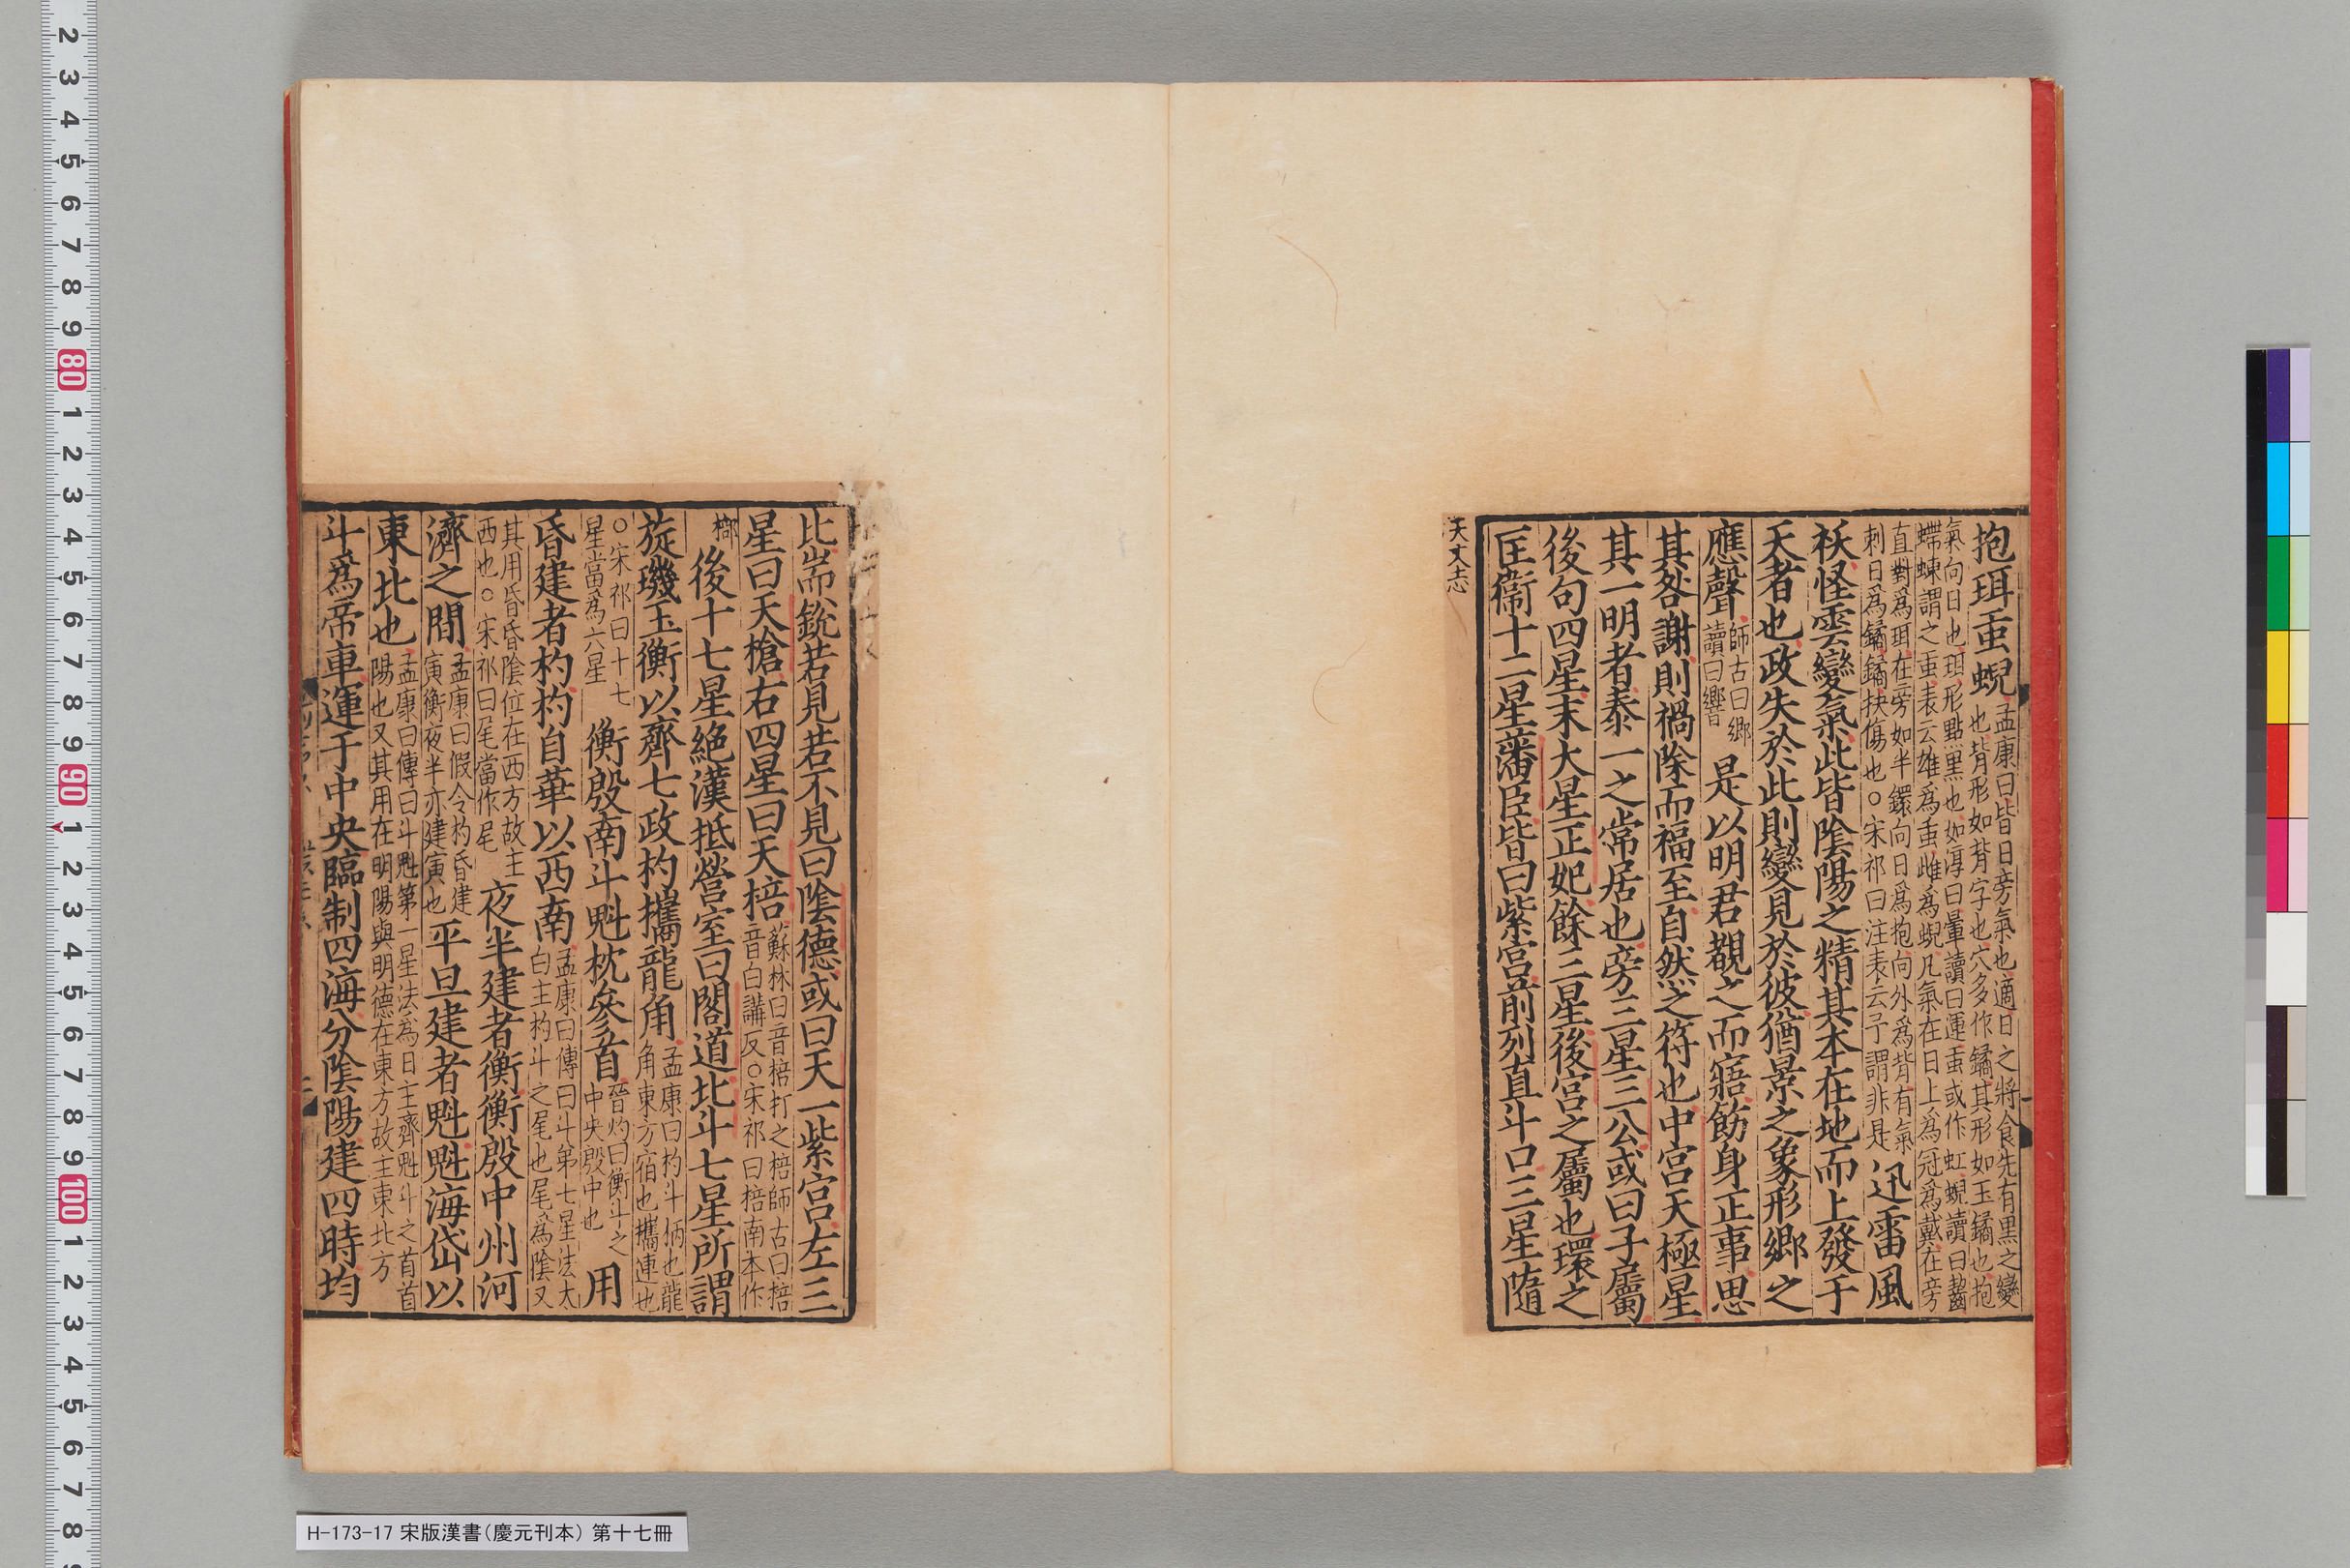 抱珥䖝蜺孟康曰皆日旁氣也適日之將食先有黑之變
也背形如背字也穴多作鐍其形如玉鐍也抱
氣向日也珥形點黑也如淳曰暈讀曰運䖝或作虹蜺讀曰齧
螮蝀謂之䖝表云雄爲䖝雌爲蜺凡氣在日上爲冠爲戴在旁
直對爲珥在旁如半鐶向日爲抱向外爲背有氣
刺日爲鐍鐍抉傷也○宋祁曰注表云予謂非是迅雷風
祅怪雲變氣此皆陰陽之精其本在地而上發于
天者也政失於此則變見於彼猶景之象形鄉之
應聲師古曰鄉讀曰響是以明君覩之而寤飭身正事思
其咎謝則禍除而福至自然之符也中宮天極星
其一明者泰一之常居也旁三星三公或曰子屬
後句四星末大星正妃餘三星後宮之屬也環之
匡衞十二星藩臣皆曰紫宮前列直斗口三星隨
天文志
比耑銳若見若不見曰陰德或曰天一紫宮左三
星曰天槍右四星曰天棓蘇林曰音棓打之棓師古曰棓音白講反○宋祁曰棓南本作
㮄後十七星絕漢抵營室曰閣道北斗七星所謂
旋璣玉衡以齊七政杓攜龍角孟康曰杓斗柄也龍角東方宿也攜連也
○宋祁曰十七星當爲六星衡殷南斗魁枕參首晉灼曰衡斗之中央殷中也用
昏建者杓杓自華以西南孟康曰傳曰斗第七星法太白主杓斗之尾也尾爲陰又
其用昏昏陰位在西方故主西也○宋祁曰尾當作㞑夜半建者衡衡殷中州河
濟之間孟康曰假令杓昏建寅衡夜半亦建寅也平旦建者魁魁海岱以
東北也孟康曰傳曰斗魁第一星法爲日主齊魁斗之首首陽也又其用在明陽與明德在東方故主東北方
斗爲帝車運于中央臨制四海分陰陽建四時均
H-173-17 宋版漢書(慶元刊本) 第十七冊